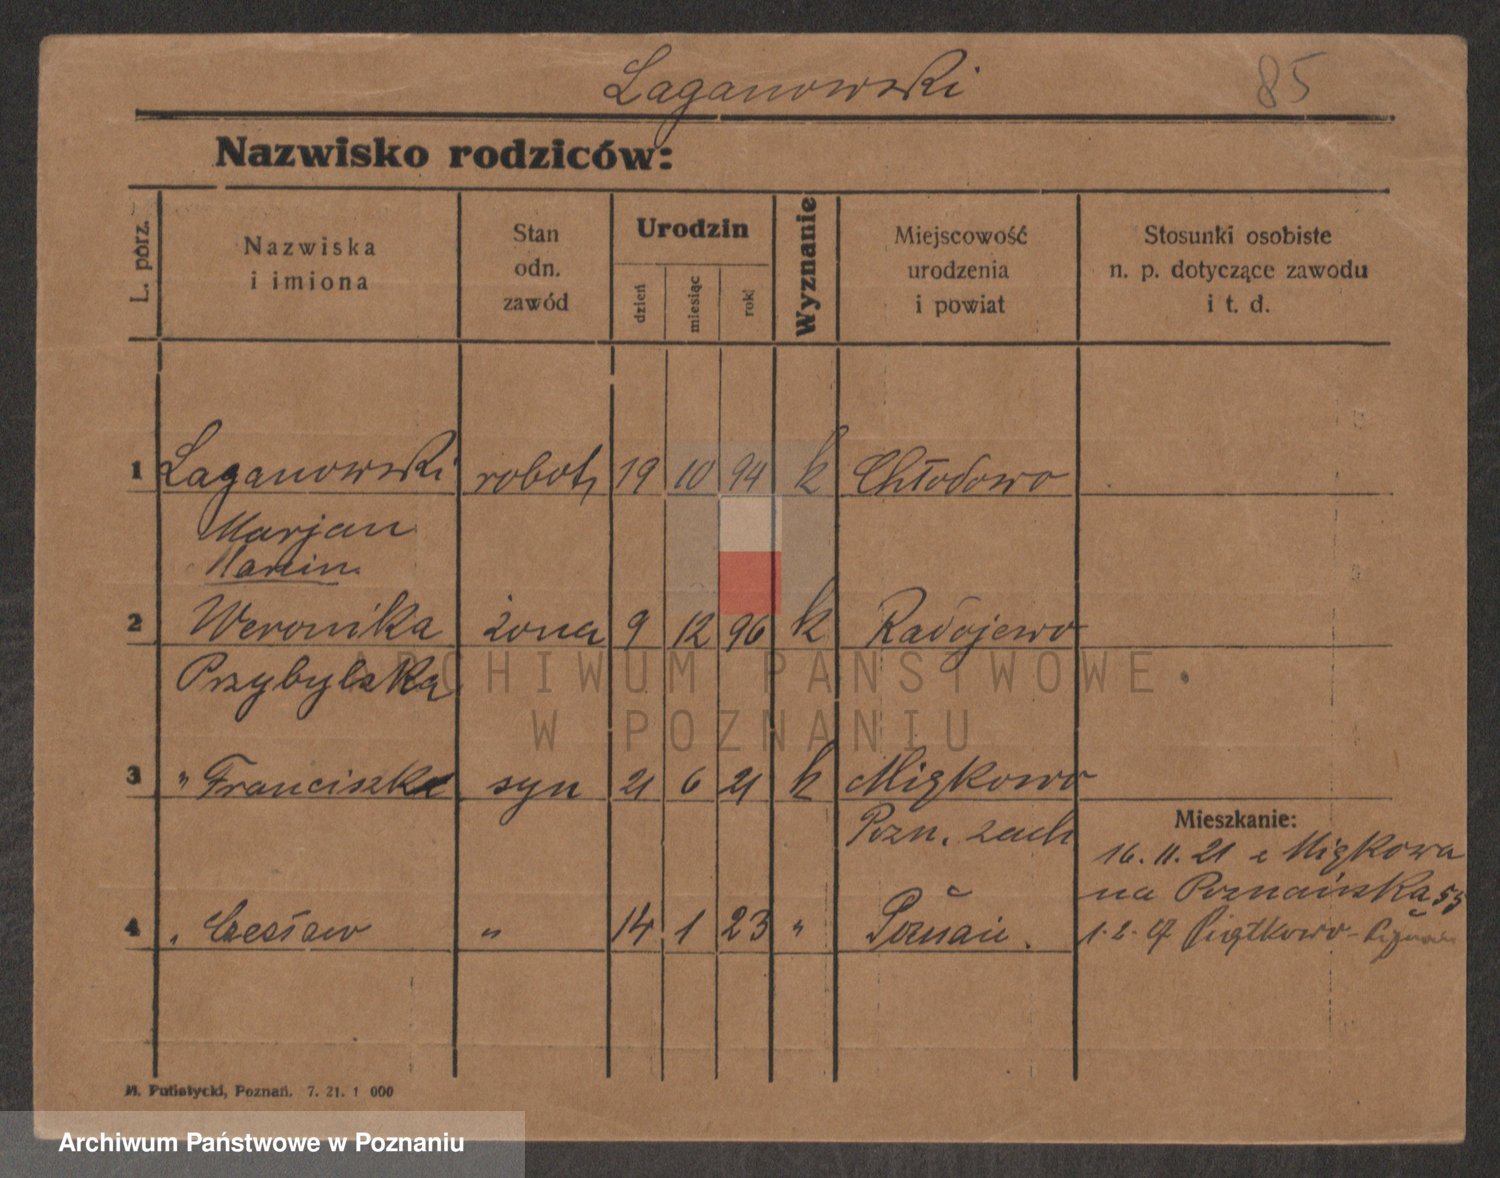 Laganowski
85
Nazwisko rodziców:
L. porz.
Nazwiska
i imiona
Stan
odn.
zawód
Urodzin
dzień
miesiąc
rok
Wyznanie
Miejscowość
urodzenia
i powiat
Stosunki osobiste
n. p. dotyczące zawodu
i t. d.
1 Laganowski robotn 19 10 94 k Chłodowo
Marjan
Marcin
2 Weronika żona 9 12 96 k Radojewo
Przybylska
ARCHIWUM PAŃSTWOWE
W POZNANIU
3 " Franciszek syn 21 6 21 k Migkowo
Pozn. zach
Mieszkanie:
16. 11. 21 z Migkowa
na Poznańska 53
4 " Czesław " 14 1 23 " Poznań.
1. 2. 27 Piątkowo-
M. Putiatycki, Poznań. 7. 21. 1 000
Archiwum Państwowe w Poznaniu